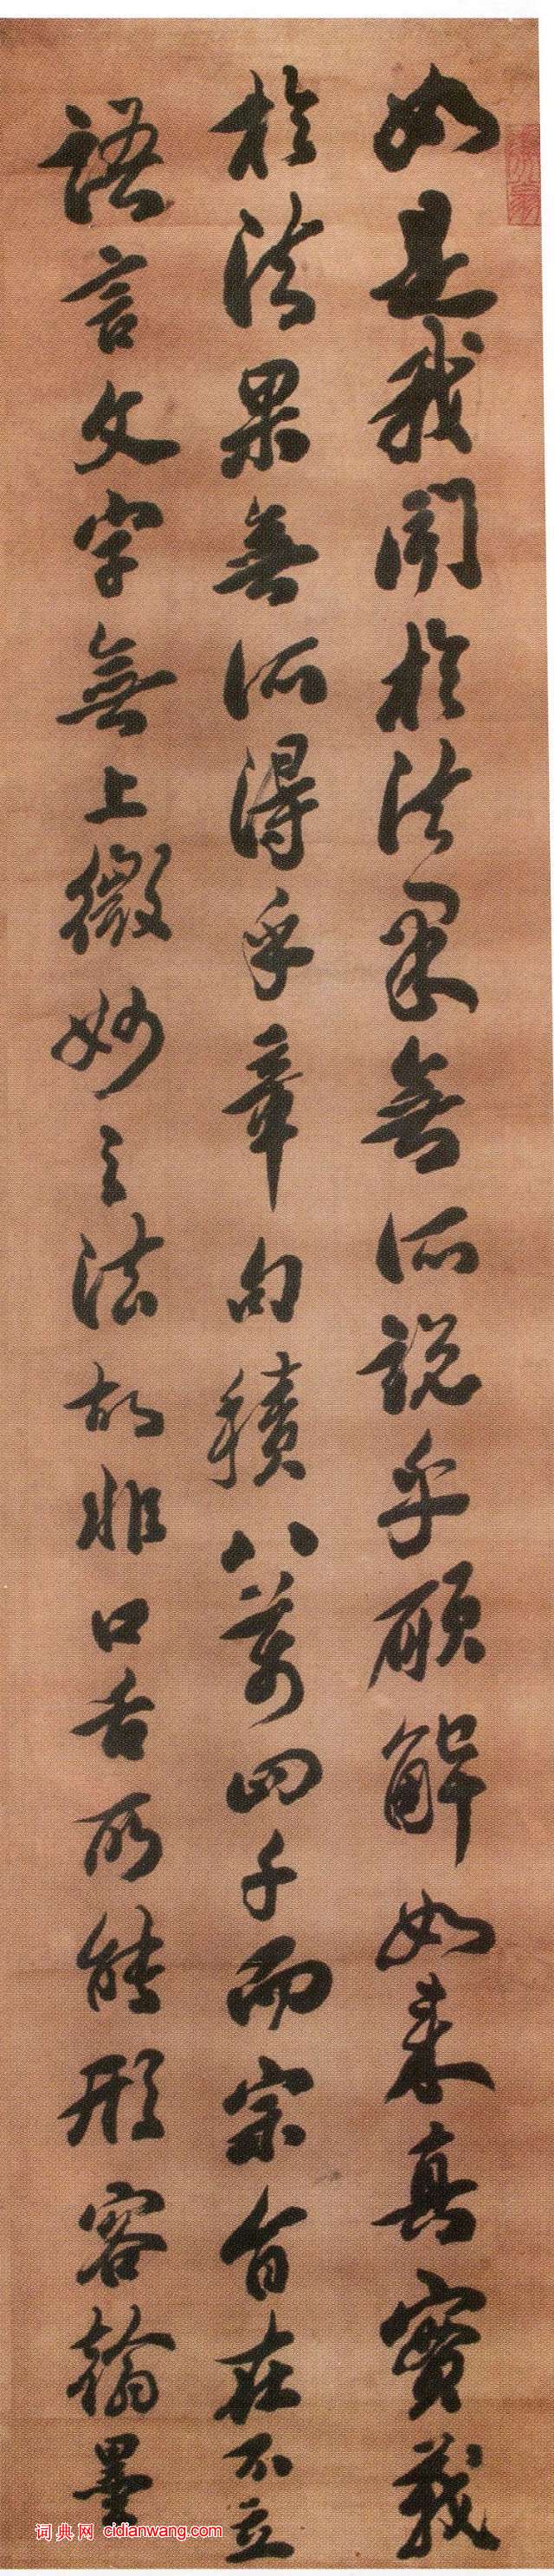 如是我聞於法果無所說乎願解如來真實義
於法果無所得乎章句積八萬四千而宗旨在不立
語言文字無上微妙之法故非口舌所能形容翰墨
词典网 cidianwang.com